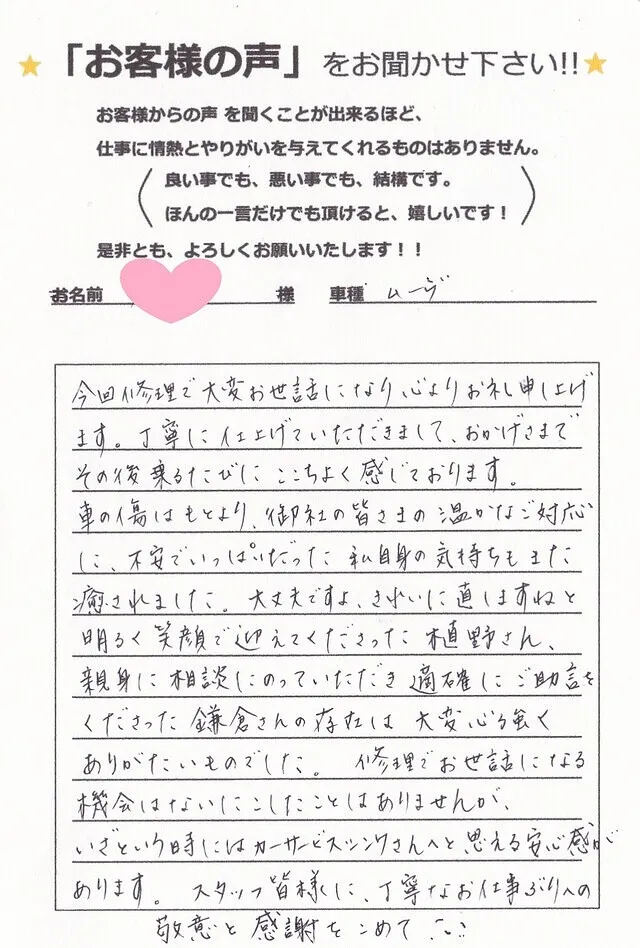 「お客様の声」をお聞かせ下さい!!
お客様からの声 を聞くことが出来るほど、
仕事に情熱とやりがいを与えてくれるものはありません。
良い事でも、悪い事でも、結構です。
ほんの一言だけでも頂けると、嬉しいです！
是非とも、よろしくお願いいたします！！
お名前 様 車種 ムーヴ
今回修理で大変お世話になり、心よりお礼申し上げ
ます。丁寧に仕上げていただきまして、おかげさまで
その後乗るたびに ここちよく感じております。
車の傷はもとより、御社の皆さまの温かなご対応
に、不安でいっぱいだった 私自身の気持ちもまた
癒されました。大丈夫ですよ、きれいに直しますねと
明るく笑顔で迎えてくださった 植野さん、
親身に相談にのっていただき 適確にご助言を
くださった 鎌倉さんの存在は 大変心強く
ありがたいものでした。 修理でお世話になる
機会はないにこしたことはありませんが、
いざという時にはカーサービスツシクさんへと思える安心感が
あります。 スタッフ皆様に、丁寧なお仕事ぶりへの
敬意と感謝をこめて